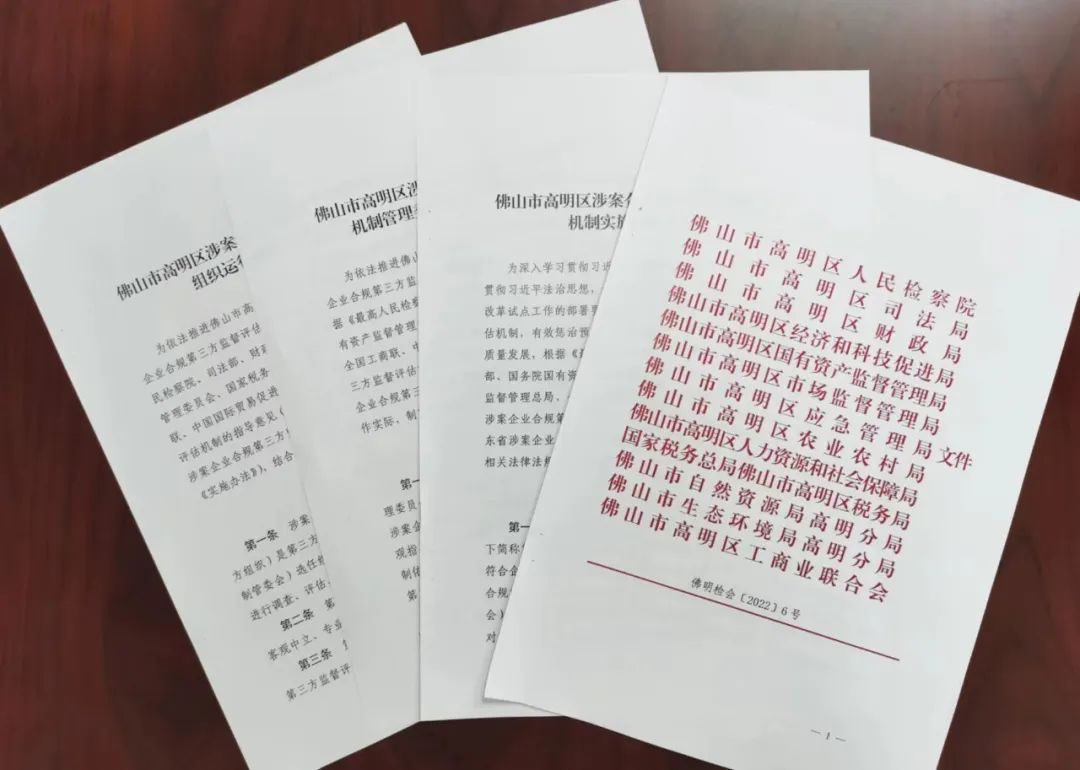 佛山市高明区涉案
组织运行
为依法推进佛山市高
企业合规第三方监督评估
民检察院、司法部、财政
管理委员会、国家税务
联、中国国际贸易促进
评估机制的指导意见（
涉案企业合规第三方
《实施办法》），结合
第一条 涉案
方组织）是第三方
制管委会）选任组
进行调查、评估、
第二条 第
客观中立、专业
第三条
第三方监督评
佛山市高明区涉
机制管理
为依法推进佛山
企业合规第三方监
据《最高人民检察
有资产监督管理
全国工商联、中
三方监督评估
企业合规第三
作实际，制
第一
理委员
涉案企
观指
制依
第
佛山市高明区涉案
机制实施
为深入学习贯彻习近
贯彻习近平法治思想，
改革试点工作的部署要
估机制，有效惩治预
质量发展，根据《最
部、国务院国有资
监督管理总局、
涉案企业合规第
东省涉案企业
相关法律法规
第一
下简称
符合企
合规
会）
对
佛山市高明区人民检察院
佛山市高明区司法局
佛山市高明区财政局
佛山市高明区经济和科技促进局
佛山市高明区国有资产监督管理局
佛山市高明区市场监督管理局
佛山市高明区应急管理局文件
佛山市高明区农业农村局
佛山市高明区人力资源和社会保障局
国家税务总局佛山市高明区税务局
佛山市自然资源局高明分局
佛山市生态环境局高明分局
佛山市高明区工商业联合会
佛明检会〔2022〕6号
— 1 —